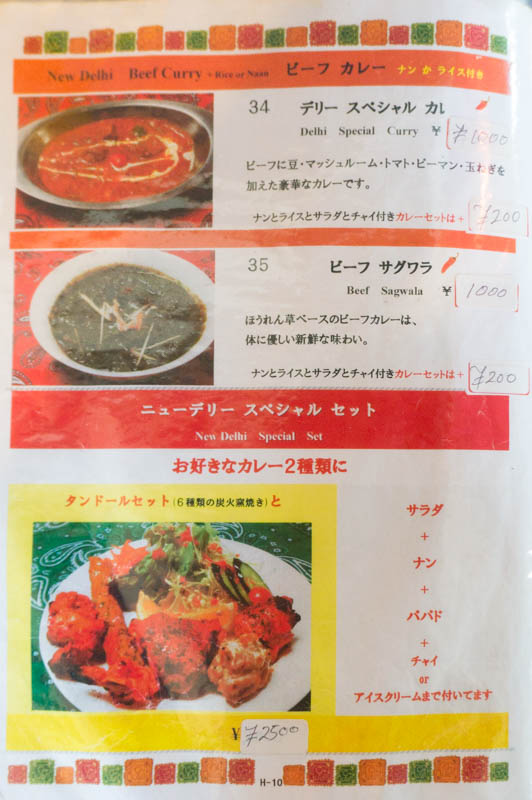 New Delhi Beef Curry + Rice or Naan ビーフ カレー ナン か ライス付き
34 デリー スペシャル カレ
Delhi Special Curry ¥ ¥1000
ビーフに豆・マッシュルーム・トマト・ピーマン・玉ねぎを
加えた豪華なカレーです。
ナンとライスとサラダとチャイ付きカレーセットは + ¥200
35 ビーフ サグワラ
Beef Sagwala ¥ 1000
ほうれん草ベースのビーフカレーは、
体に優しい新鮮な味わい。
ナンとライスとサラダとチャイ付きカレーセットは + ¥200
ニューデリー スペシャル セット
New Delhi Special Set
お好きなカレー2種類に
タンドールセット(6種類の炭火窯焼き)と
サラダ
+
ナン
+
パパド
+
チャイ
or
アイスクリームまで付いてます
¥ ¥2500
H-10